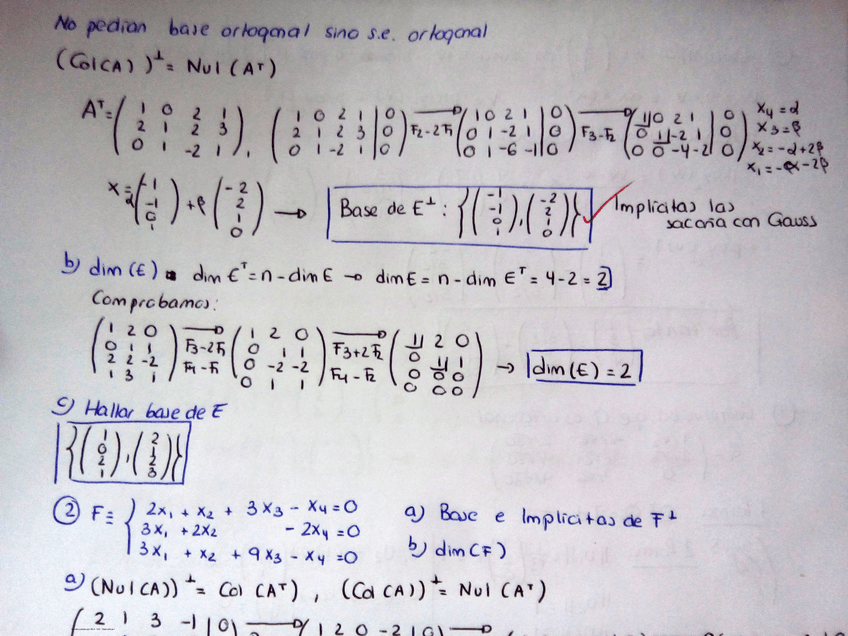 No pedian base ortogonal sino s.e. ortogonal
(Col(A))⊥ = Nul(Aᵀ)
Aᵀ = (1 0 2 1; 2 1 2 3; 0 1 -2 1), (1 0 2 1 | 0; 2 1 2 3 | 0; 0 1 -2 1 | 0) F2-2F1 → (1 0 2 1 | 0; 0 1 -2 1 | 0; 0 1 -6 -1 | 0) F3-F2 → (1 0 2 1 | 0; 0 1 -2 1 | 0; 0 0 -4 -2 | 0) x4=α x3=β x2=-α+2β x1=-α-2β
x = α(-1 -1 0 1) + β(-2 2 1 0) → Base de E⊥: {(-1 -1 0 1), (-2 2 1 0)} ✓ Implícitas las sacaría con Gauss
b) dim(E) dim Eᵀ = n - dim E → dim E = n - dim Eᵀ = 4 - 2 = 2
Comprobamos:
(1 2 0; 0 1 1; 2 2 -2; 1 3 1) F3-2F1 F4-F1 → (1 2 0; 0 1 1; 0 -2 -2; 0 1 1) F3+2F2 F4-F2 → (1 2 0; 0 1 1; 0 0 0; 0 0 0) → dim(E) = 2
c) Hallar base de E
{(1 0 2 1), (2 1 2 3)}
2 F ≡ { 2x1 + x2 + 3x3 - x4 = 0 a) Base e Implícitas de F⊥
3x1 + 2x2 - 2x4 = 0
3x1 + x2 + 9x3 - x4 = 0 b) dim(F)
a) (Nul(A))⊥ = Col(Aᵀ), (Col(A))⊥ = Nul(Aᵀ)
(2 1 3 -1 | 0) → (1 2 0 -2 | 0) →